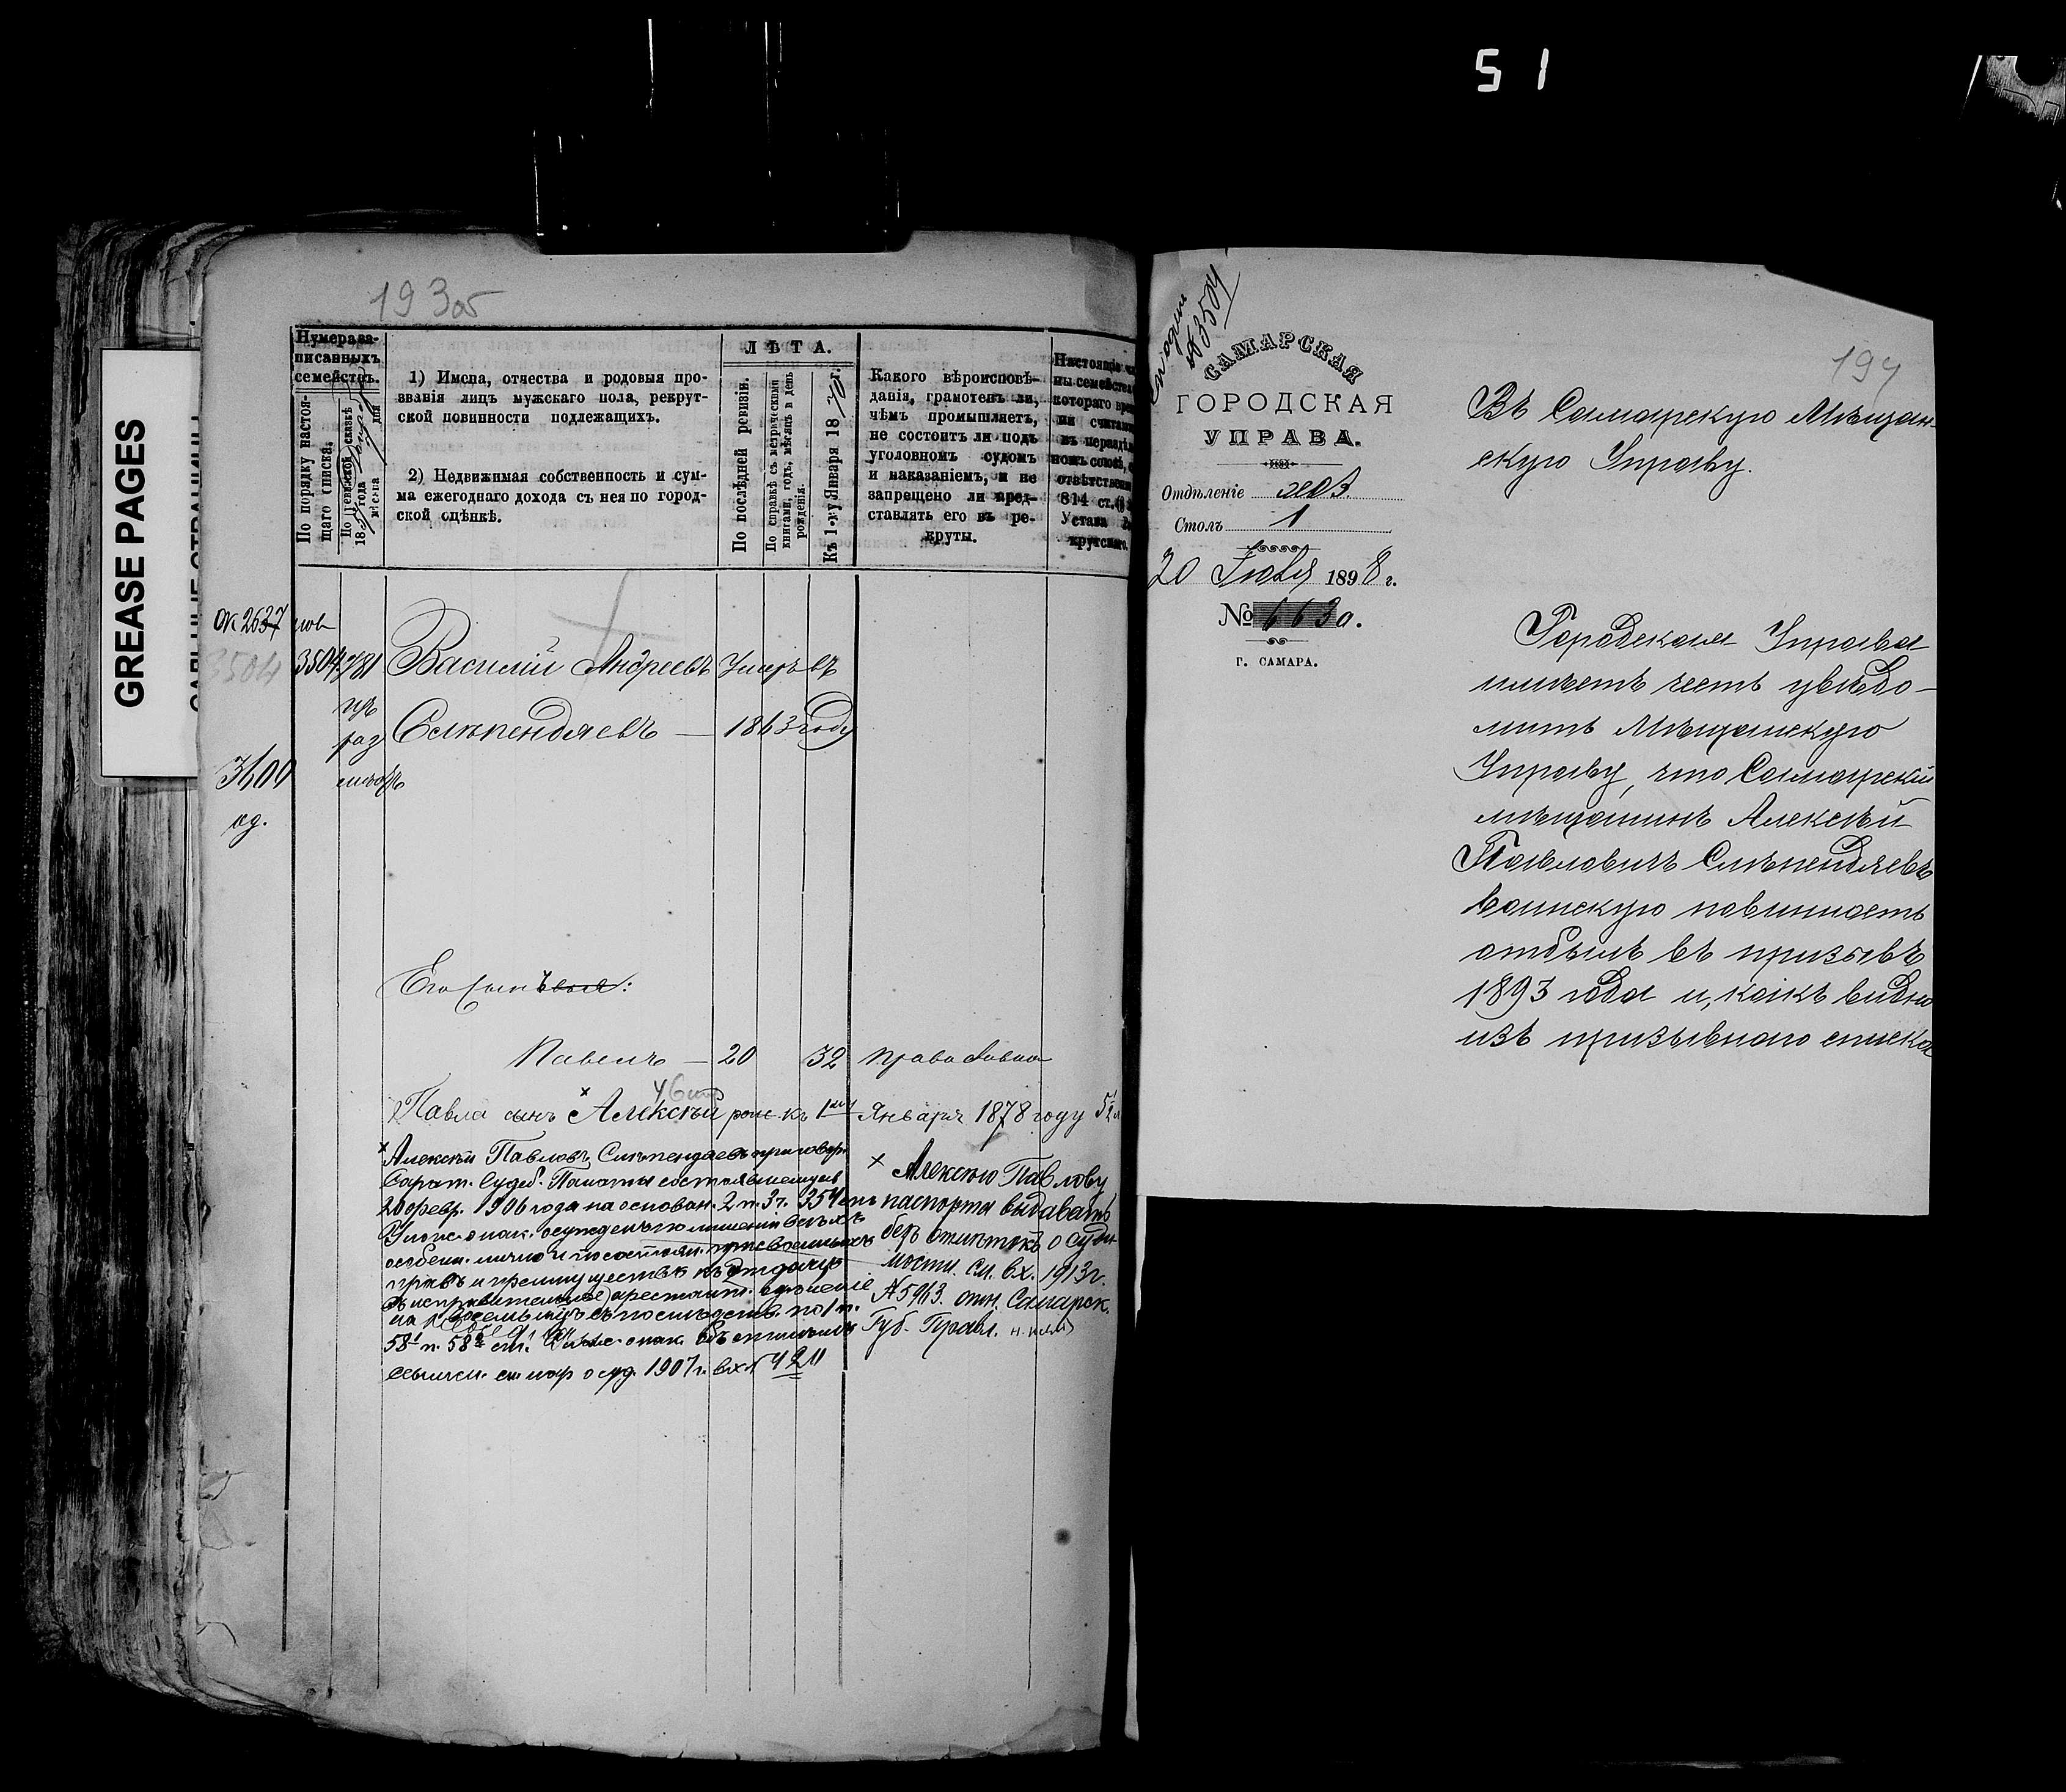 51
GREASE PAGES
193об
Нумера за-
писанныхъ
семействъ.
По порядку настоя-
щаго списка.
По ревизской сказкѣ
18 года
мѣсяца дня
1) Имена, отчества и родовыя про-
званія лицъ мужскаго пола, рекрут-
ской повинности подлежащихъ.
2) Недвижимая собственность и сум-
ма ежегоднаго дохода съ нея по город-
ской оцѣнкѣ.
ЛѢТА.
По послѣдней ревизіи.
По справкѣ съ метрическими
книгами, годъ, мѣсяцъ и день
рожденія.
Къ 1-му Января 1870 г.
Какого вѣроисповѣ-
данія, грамотенъ ли,
чѣмъ промышляетъ,
не состоитъ ли подъ
уголовномъ судомъ
и наказаніемъ, и не
запрещено ли пред-
ставлять его въ ре-
круты.
Настоящіе
ны семейства
котораго вре
ми считают
въ нераздѣл
номъ союзѣ,
отвѣтствен
814 ст.
Устава Ре
крутскаго.
2637
3504
3504 781 Василій Андреевъ Умеръ въ
Слѣпендяевъ — 1863 году
3600
од.
Его сынъ:
Павелъ — 20 32 православнаго
46
Павла сынъ Алексѣй рож. къ 1му Января 1878 году 5½
Алексѣй Павловъ Слѣпендяевъ приговор.
Сарат. Судеб. Палаты состоявшемуся
20 февр. 1906 года на основан. 2 п. 3 ч. 354 ст.
Улож. о нак. осужденъ по лишении всѣхъ
особен. лично и по состоян. присвоенныхъ
правъ и преимуществъ къ отдачѣ
въ исправительное арестант. отдѣленіе
на съ послѣдств. по 1 п.
58¹ п. 58² ст. Улож. о нак.
о суд. 1907 г. вх. № 420
× Алексѣю Павлову
паспорта выдавать
безъ отмѣтокъ о суди
мости. см. вх. 1913 г.
№ 5963. отн. Самарск.
Губ. Правл.
№ 3504
САМАРСКАЯ
ГОРОДСКАЯ
УПРАВА.
Отдѣленіе
Столъ 1
20 Іюля 1898 г.
№ 6630.
Г. САМАРА.
194
Въ Самарскую Мѣщан-
скую Управу.
Городская Управа
имѣетъ честь увѣдо-
мить Мѣщанскую
Управу, что Самарскій
мѣщанинъ Алексѣй
Павловичъ Слѣпендяевъ
воинскую повинность
отбылъ въ призывѣ
1893 года и, какъ видно
изъ призывнаго списка